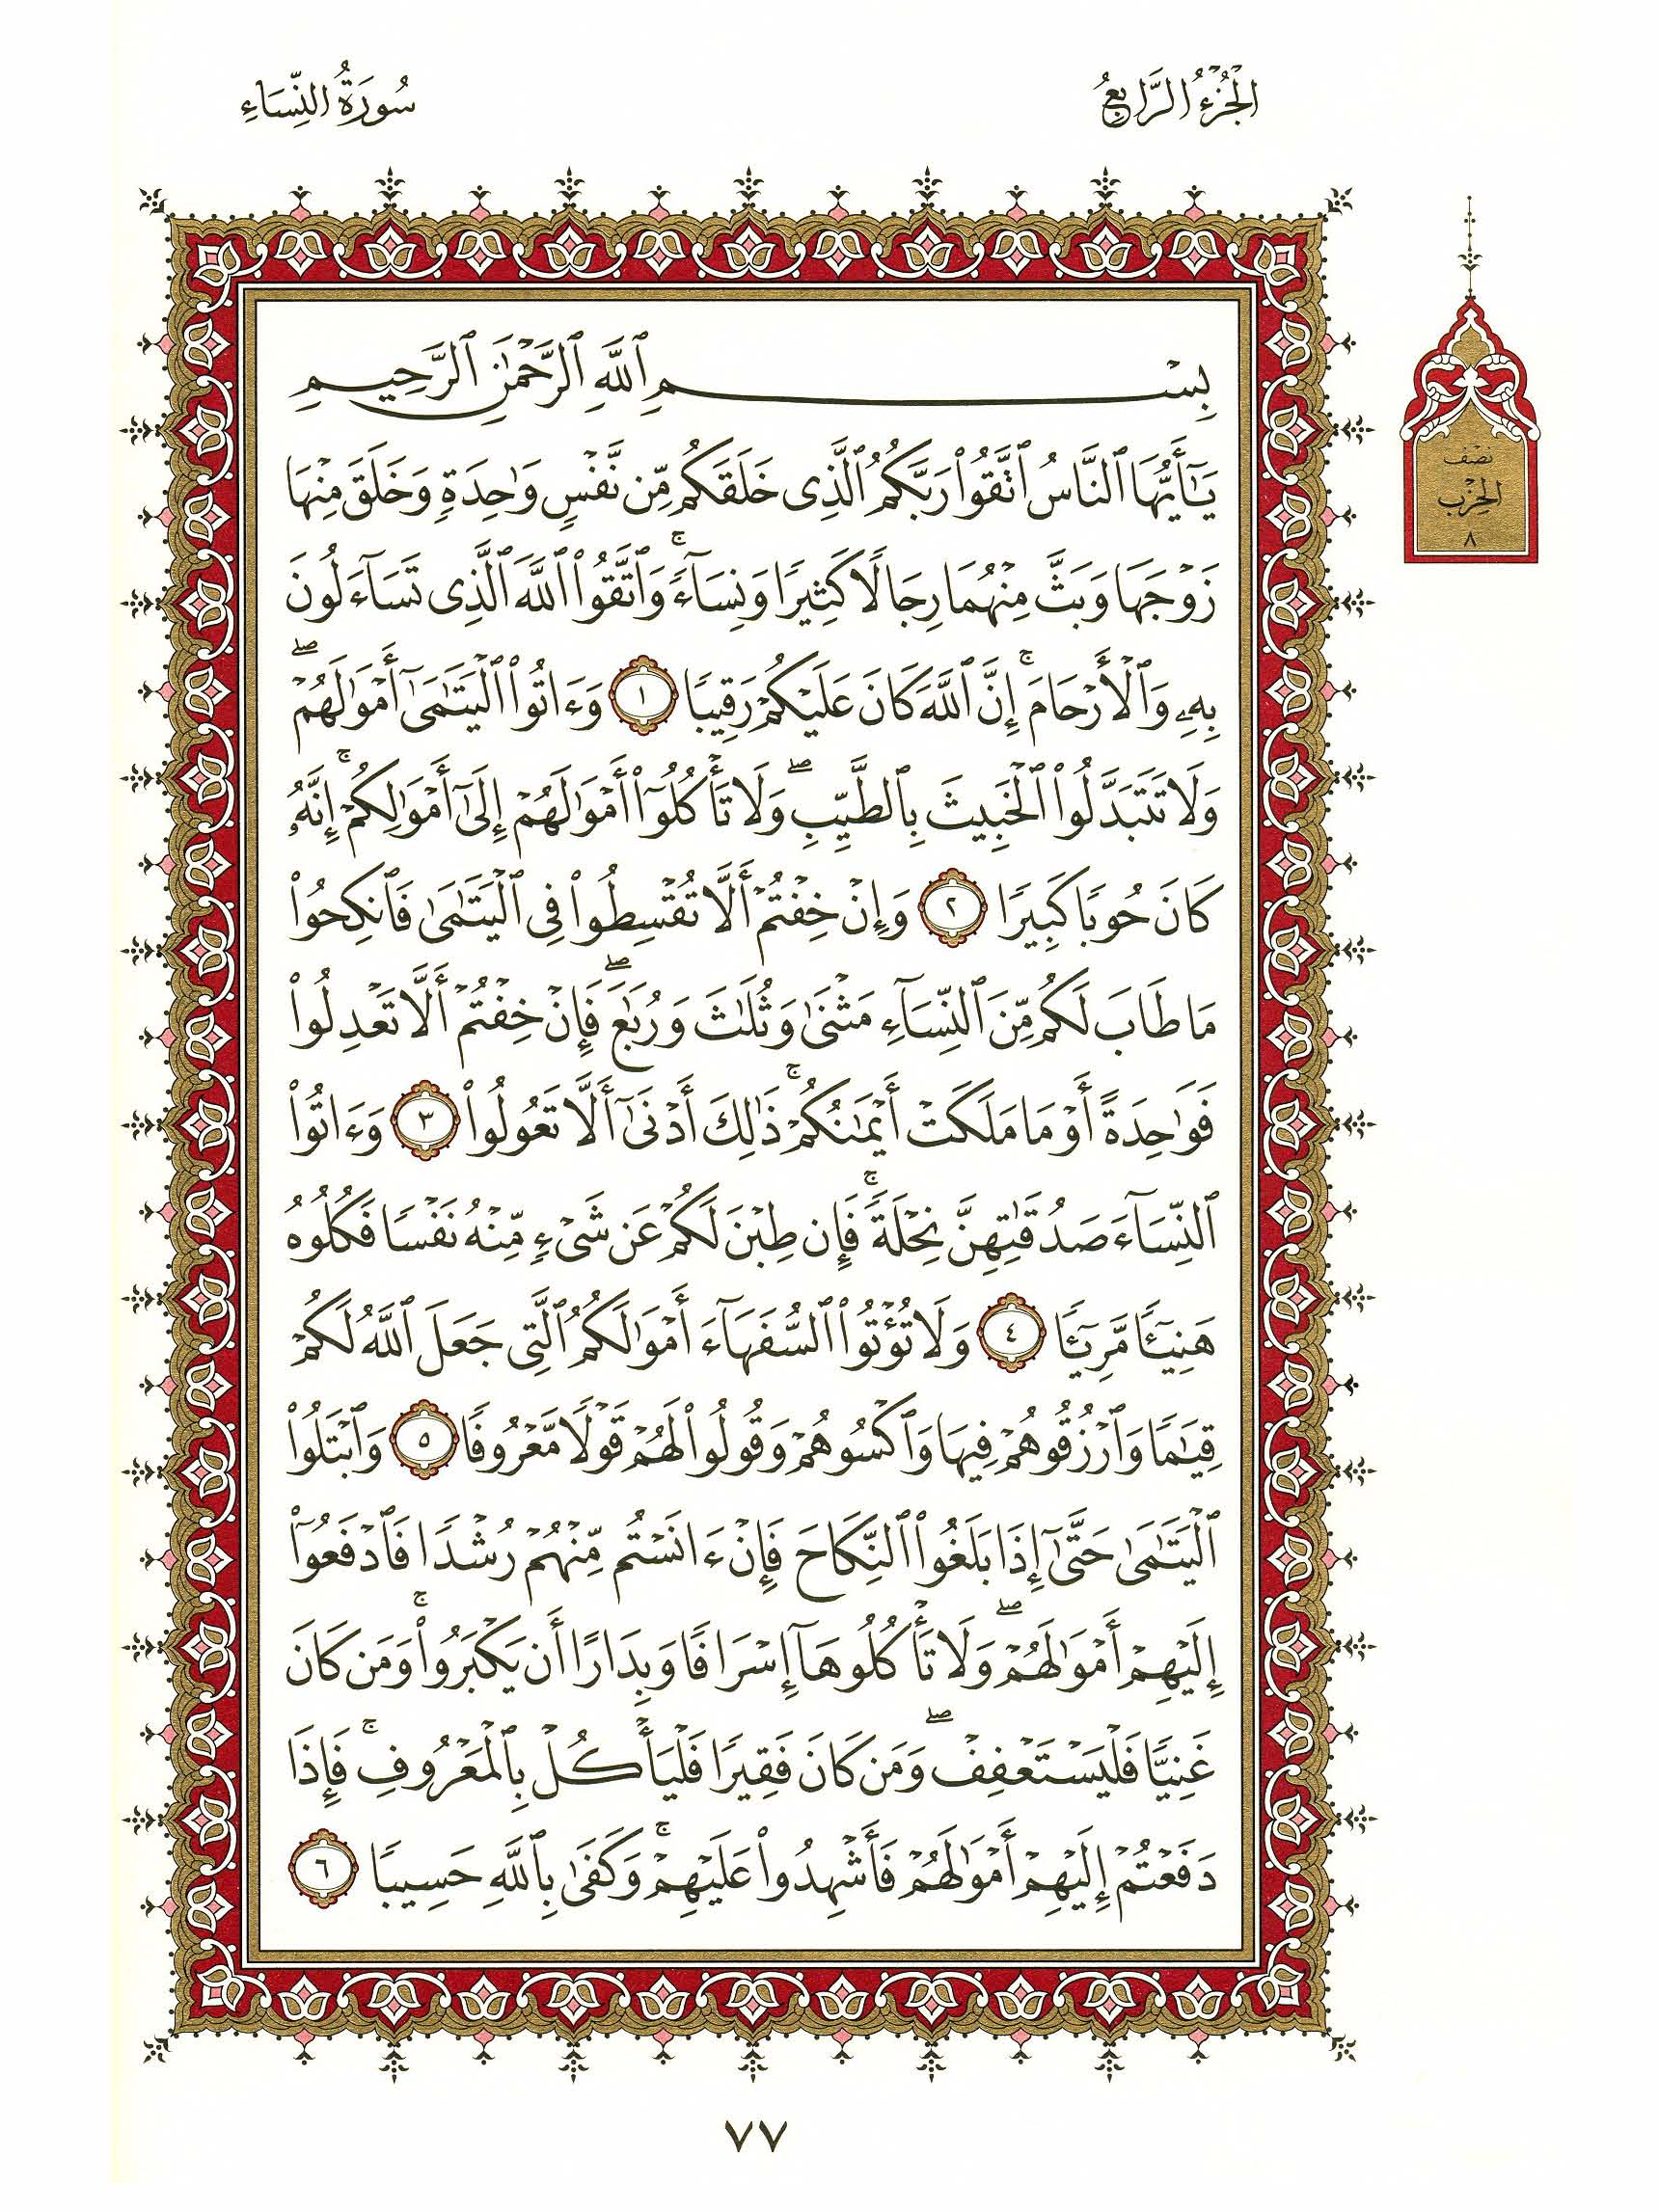 الجُزْءُ الرَّابِعُ
سُورَةُ النِّسَاءِ
بِسْمِ ٱللَّهِ ٱلرَّحْمَٰنِ ٱلرَّحِيمِ
يَـٰٓأَيُّهَا ٱلنَّاسُ ٱتَّقُوا۟ رَبَّكُمُ ٱلَّذِى خَلَقَكُم مِّن نَّفْسٍ وَٰحِدَةٍ وَخَلَقَ مِنْهَا
زَوْجَهَا وَبَثَّ مِنْهُمَا رِجَالًا كَثِيرًا وَنِسَآءً ۚ وَٱتَّقُوا۟ ٱللَّهَ ٱلَّذِى تَسَآءَلُونَ
بِهِۦ وَٱلْأَرْحَامَ ۚ إِنَّ ٱللَّهَ كَانَ عَلَيْكُمْ رَقِيبًا ١ وَءَاتُوا۟ ٱلْيَتَـٰمَىٰٓ أَمْوَٰلَهُمْ ۖ
وَلَا تَتَبَدَّلُوا۟ ٱلْخَبِيثَ بِٱلطَّيِّبِ ۖ وَلَا تَأْكُلُوٓا۟ أَمْوَٰلَهُمْ إِلَىٰٓ أَمْوَٰلِكُمْ ۚ إِنَّهُۥ
كَانَ حُوبًا كَبِيرًا ٢ وَإِنْ خِفْتُمْ أَلَّا تُقْسِطُوا۟ فِى ٱلْيَتَـٰمَىٰ فَٱنكِحُوا۟
مَا طَابَ لَكُم مِّنَ ٱلنِّسَآءِ مَثْنَىٰ وَثُلَـٰثَ وَرُبَـٰعَ ۖ فَإِنْ خِفْتُمْ أَلَّا تَعْدِلُوا۟
فَوَٰحِدَةً أَوْ مَا مَلَكَتْ أَيْمَـٰنُكُمْ ۚ ذَٰلِكَ أَدْنَىٰٓ أَلَّا تَعُولُوا۟ ٣ وَءَاتُوا۟
ٱلنِّسَآءَ صَدُقَـٰتِهِنَّ نِحْلَةً ۚ فَإِن طِبْنَ لَكُمْ عَن شَىْءٍ مِّنْهُ نَفْسًا فَكُلُوهُ
هَنِيٓـًٔا مَّرِيٓـًٔا ٤ وَلَا تُؤْتُوا۟ ٱلسُّفَهَآءَ أَمْوَٰلَكُمُ ٱلَّتِى جَعَلَ ٱللَّهُ لَكُمْ
قِيَـٰمًا وَٱرْزُقُوهُمْ فِيهَا وَٱكْسُوهُمْ وَقُولُوا۟ لَهُمْ قَوْلًا مَّعْرُوفًا ٥ وَٱبْتَلُوا۟
ٱلْيَتَـٰمَىٰ حَتَّىٰٓ إِذَا بَلَغُوا۟ ٱلنِّكَاحَ فَإِنْ ءَانَسْتُم مِّنْهُمْ رُشْدًا فَٱدْفَعُوٓا۟
إِلَيْهِمْ أَمْوَٰلَهُمْ ۖ وَلَا تَأْكُلُوهَآ إِسْرَافًا وَبِدَارًا أَن يَكْبَرُوا۟ ۚ وَمَن كَانَ
غَنِيًّا فَلْيَسْتَعْفِفْ ۖ وَمَن كَانَ فَقِيرًا فَلْيَأْكُلْ بِٱلْمَعْرُوفِ ۚ فَإِذَا
دَفَعْتُمْ إِلَيْهِمْ أَمْوَٰلَهُمْ فَأَشْهِدُوا۟ عَلَيْهِمْ ۚ وَكَفَىٰ بِٱللَّهِ حَسِيبًا ٦
نصف
الحِزْب
٨
٧٧